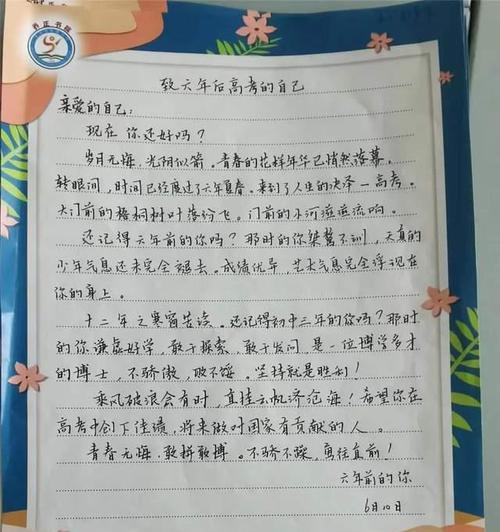 致六年后高考的自己
亲爱的自己:
现在 你还好吗?
岁月无悔,光阴似箭。青春的花样年华已悄然落幕。
转眼间,时间已经度过了六年夏春。来到了人生的决泽—高考。
大门前的梧桐树叶落纷飞。门前的小河溢溢流响。
还记得六年前的你吗?那时的你桀骜不训,天真的
少年气息还未完全褪去。成绩优异,艺术气息完全浮现在
你的身上。
十二年之寒窗苦读。还记得初中三年的你吗?那时
的你谦虚好学,敢于探索,敢于发问,是一位博学多才
的博士,不骄傲,败不馁。坚持就是胜利!
乘风破浪会有时,直挂云帆济沧海!希望你在
高考中创下佳绩,将来做叶国家有贡献的人。
青春无悔,敢拼敢搏。不骄不躁,勇往直前!
六年前的你
6月10日